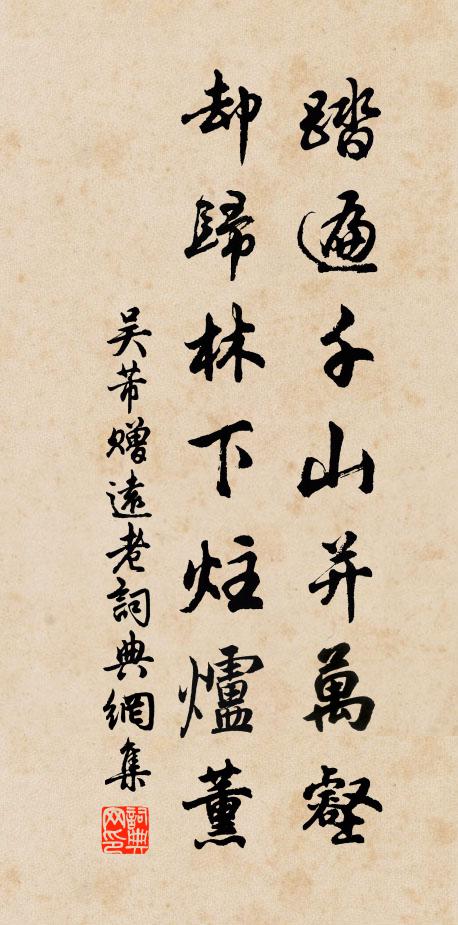 踏遍千山并萬壑
却歸林下炷爐薰
吴芾贈遠老詞典網集
詞典网印